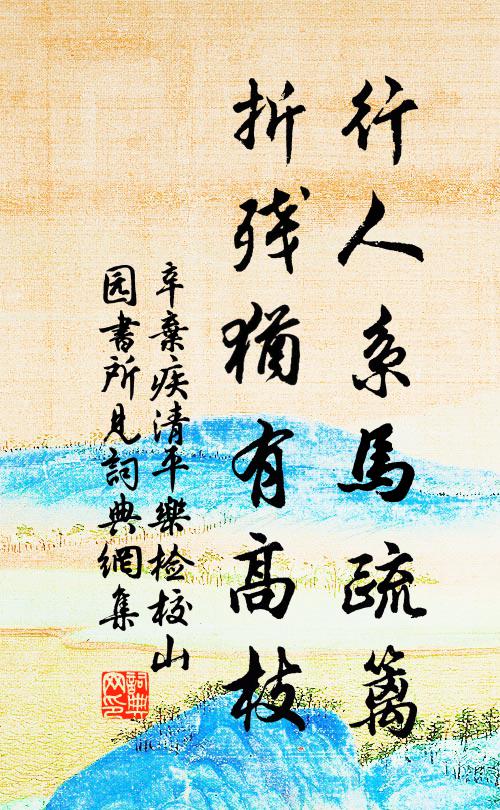 行人系馬疏篱
折残猶有高枝
辛棄疾清平樂检校山
园書所見詞典網集
詞典网印